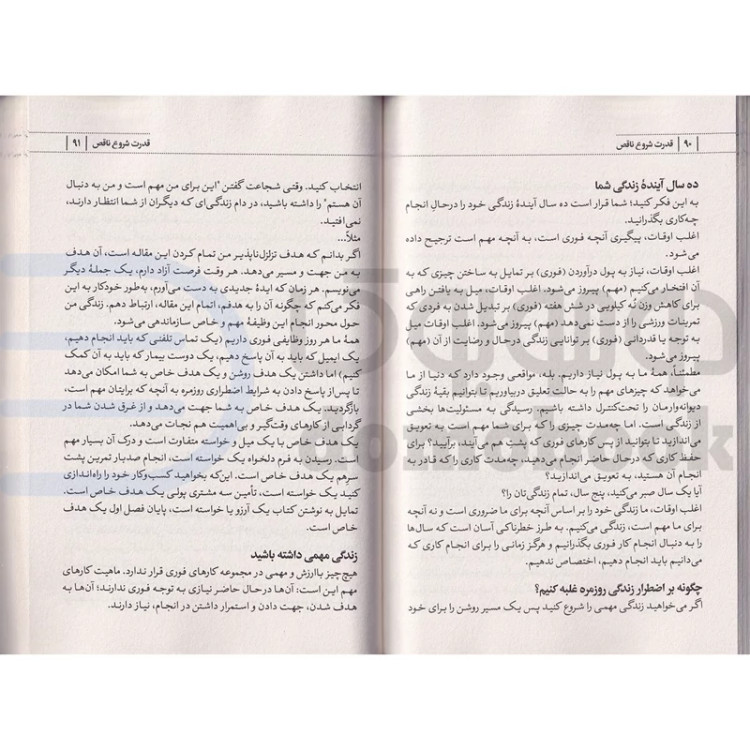 ۹۰ | قدرت شروع ناقص
ده سال آیندهٔ زندگی شما
به این فکر کنید؛ شما قرار است ده سال آیندهٔ زندگی خود را درحالِ انجام
چه‌کاری بگذرانید.
اغلب اوقات، پیگیری آنچه فوری است، به آنچه مهم است ترجیح داده
می‌شود.
اغلب اوقات، نیاز به پول درآوردن (فوری) بر تمایل به ساختن چیزی که به
آن افتخار می‌کنیم (مهم) پیروز می‌شود. اغلب اوقات، میل به یافتن راهی
برای کاهش وزن نُه کیلویی در شش هفته (فوری) بر تبدیل شدن به فردی که
تمرینات ورزشی را از دست نمی‌دهد (مهم) پیروز می‌شود. اغلب اوقات میل
به توجه یا قدردانی (فوری) بر توانایی زندگی درحال و رضایت از آن (مهم)
پیروز می‌شود.
مطمئناً، همهٔ ما به پول نیاز داریم. بله، مواقعی وجود دارد که دنیا از ما
می‌خواهد که چیزهای مهم را به حالت تعلیق دربیاوریم تا بتوانیم بقیهٔ زندگی
دیوانه‌وارمان را تحت‌کنترل داشته باشیم. رسیدگی به مسئولیت‌ها بخشی
از زندگی است. اما چه‌مدت چیزی را که برای شما مهم است به تعویق
می‌اندازید تا بتوانید از پس کارهای فوری که پشتِ هم می‌آیند، برآیید؟ برای
حفظ کاری که درحال‌حاضر انجام می‌دهید، چه‌مدت کاری را که قادر به
انجام آن هستید، به تعویق می‌اندازید؟
آیا یک سال صبر می‌کنید، پنج سال، تمام زندگی‌تان را؟
اغلب اوقات، ما زندگی خود را بر اساس آنچه برای ما ضروری است و نه آنچه
برای ما مهم است، زندگی می‌کنیم. به طرز خطرناکی آسان است که سال‌ها
را به دنبال انجام کار فوری بگذرانیم و هرگز زمانی را برای انجام کاری که
می‌دانیم باید انجام دهیم، اختصاص ندهیم.
چگونه بر اضطرار زندگی روزمره غلبه کنیم؟
اگر می‌خواهید زندگی مهمی را شروع کنید پس یک مسیر روشن را برای خود
قدرت شروع ناقص | ۹۱
انتخاب کنید. وقتی شجاعت گفتن "این برای من مهم است و من به دنبال
آن هستم" را داشته باشید، در دام زندگی‌ای که دیگران از شما انتظار دارند،
نمی‌افتید.
مثلاً...
اگر بدانم که هدف تزلزل‌ناپذیر من تمام کردن این مقاله است، آن هدف
به من جهت و مسیر می‌دهد. هر وقت فرصت آزاد دارم، یک جملهٔ دیگر
می‌نویسم. هر زمان که ایدهٔ جدیدی به دست می‌آورم، به‌طور خودکار به این
فکر می‌کنم که چگونه آن را به هدفم، اتمام این مقاله، ارتباط دهم. زندگی من
حول محور انجام این وظیفهٔ مهم و خاص سازماندهی می‌شود.
همهٔ ما هر روز وظایفی فوری داریم (یک تماس تلفنی که باید انجام دهیم،
یک ایمیل که باید به آن پاسخ دهیم، یک دوست بیمار که باید به آن کمک
کنیم) اما داشتن یک هدف روشن و یک هدف خاص به شما امکان می‌دهد
تا پس‌از پاسخ دادن به شرایط اضطراری روزمره به آنچه که برایتان مهم است،
بازگردید. یک هدف خاص به شما جهت می‌دهد و از غرق شدن شما در
گردابی از کارهای وقت‌گیر و بی‌اهمیت هم نجات می‌دهد.
یک هدف خاص با یک میل و خواسته متفاوت است و درک آن بسیار مهم
است. رسیدن به فرم دلخواه یک خواسته است. انجام صدبار تمرین پشت
سرهم یک هدف خاص است. این‌که بخواهید کسب‌وکار خود را راه‌اندازی
کنید یک خواسته است، تأمین سه مشتری پولی یک هدف خاص است.
تمایل به نوشتن کتاب یک آرزو یا خواسته است، پایان فصل اول یک هدف
خاص است.
زندگی مهمی داشته باشید
هیچ‌چیز باارزش و مهمی در مجموعه کارهای فوری قرار ندارد. ماهیت کارهای
مهم این است: آن‌ها درحال حاضر نیازی به توجه فوری ندارند؛ آن‌ها به
هدف شدن، جهت دادن و استمرار داشتن در انجام، نیاز دارند.